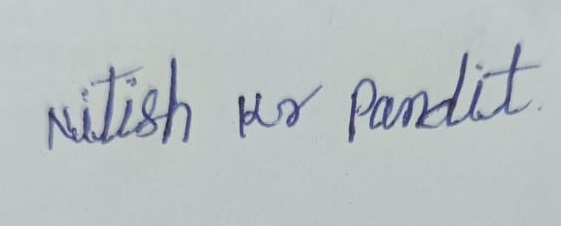 Nitish Kr Pandit.